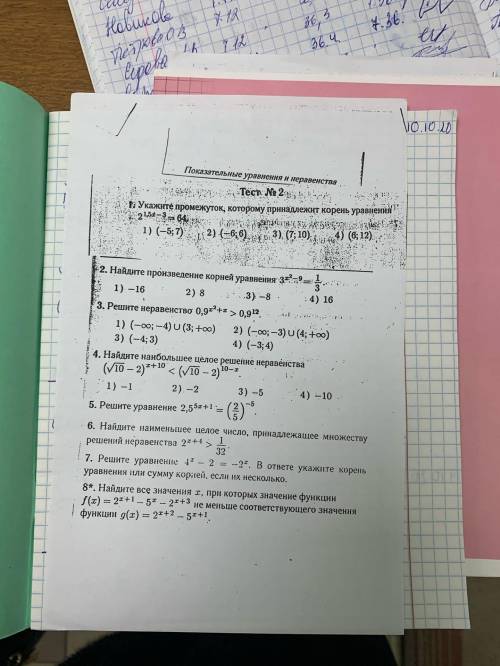 Новикова 7.12
36,3 7.36.
Петрова О В
7.12 36.4
10.10.20
Показательные уравнения и неравенства
Тест №2
1. Укажите промежуток, которому принадлежит корень уравнения
2^{1,5x−3} = 64.
1) (−5; 7) 2) (−6; 6) 3) (7; 10) 4) (6; 12)
2. Найдите произведение корней уравнения 3^{x²−9} = 1/3.
1) −16 2) 8 3) −8 4) 16
3. Решите неравенство 0,9^{x²+x} > 0,9^{12}.
1) (−∞; −4) ∪ (3; +∞) 2) (−∞; −3) ∪ (4; +∞)
3) (−4; 3) 4) (−3; 4)
4. Найдите наибольшее целое решение неравенства
(√10 − 2)^{x+10} < (√10 − 2)^{10−x}.
1) −1 2) −2 3) −5 4) −10
5. Решите уравнение 2,5^{5x+1} = (2/5)^{−5}.
6. Найдите наименьшее целое число, принадлежащее множеству
решений неравенства 2^{x+4} > 1/32.
7. Решите уравнение 4^x − 2 = −2^x. В ответе укажите корень
уравнения или сумму корней, если их несколько.
8*. Найдите все значения x, при которых значение функции
f(x) = 2^{x+1} − 5^x − 2^{x+3} не меньше соответствующего значения
функции g(x) = 2^{x+2} − 5^{x+1}.